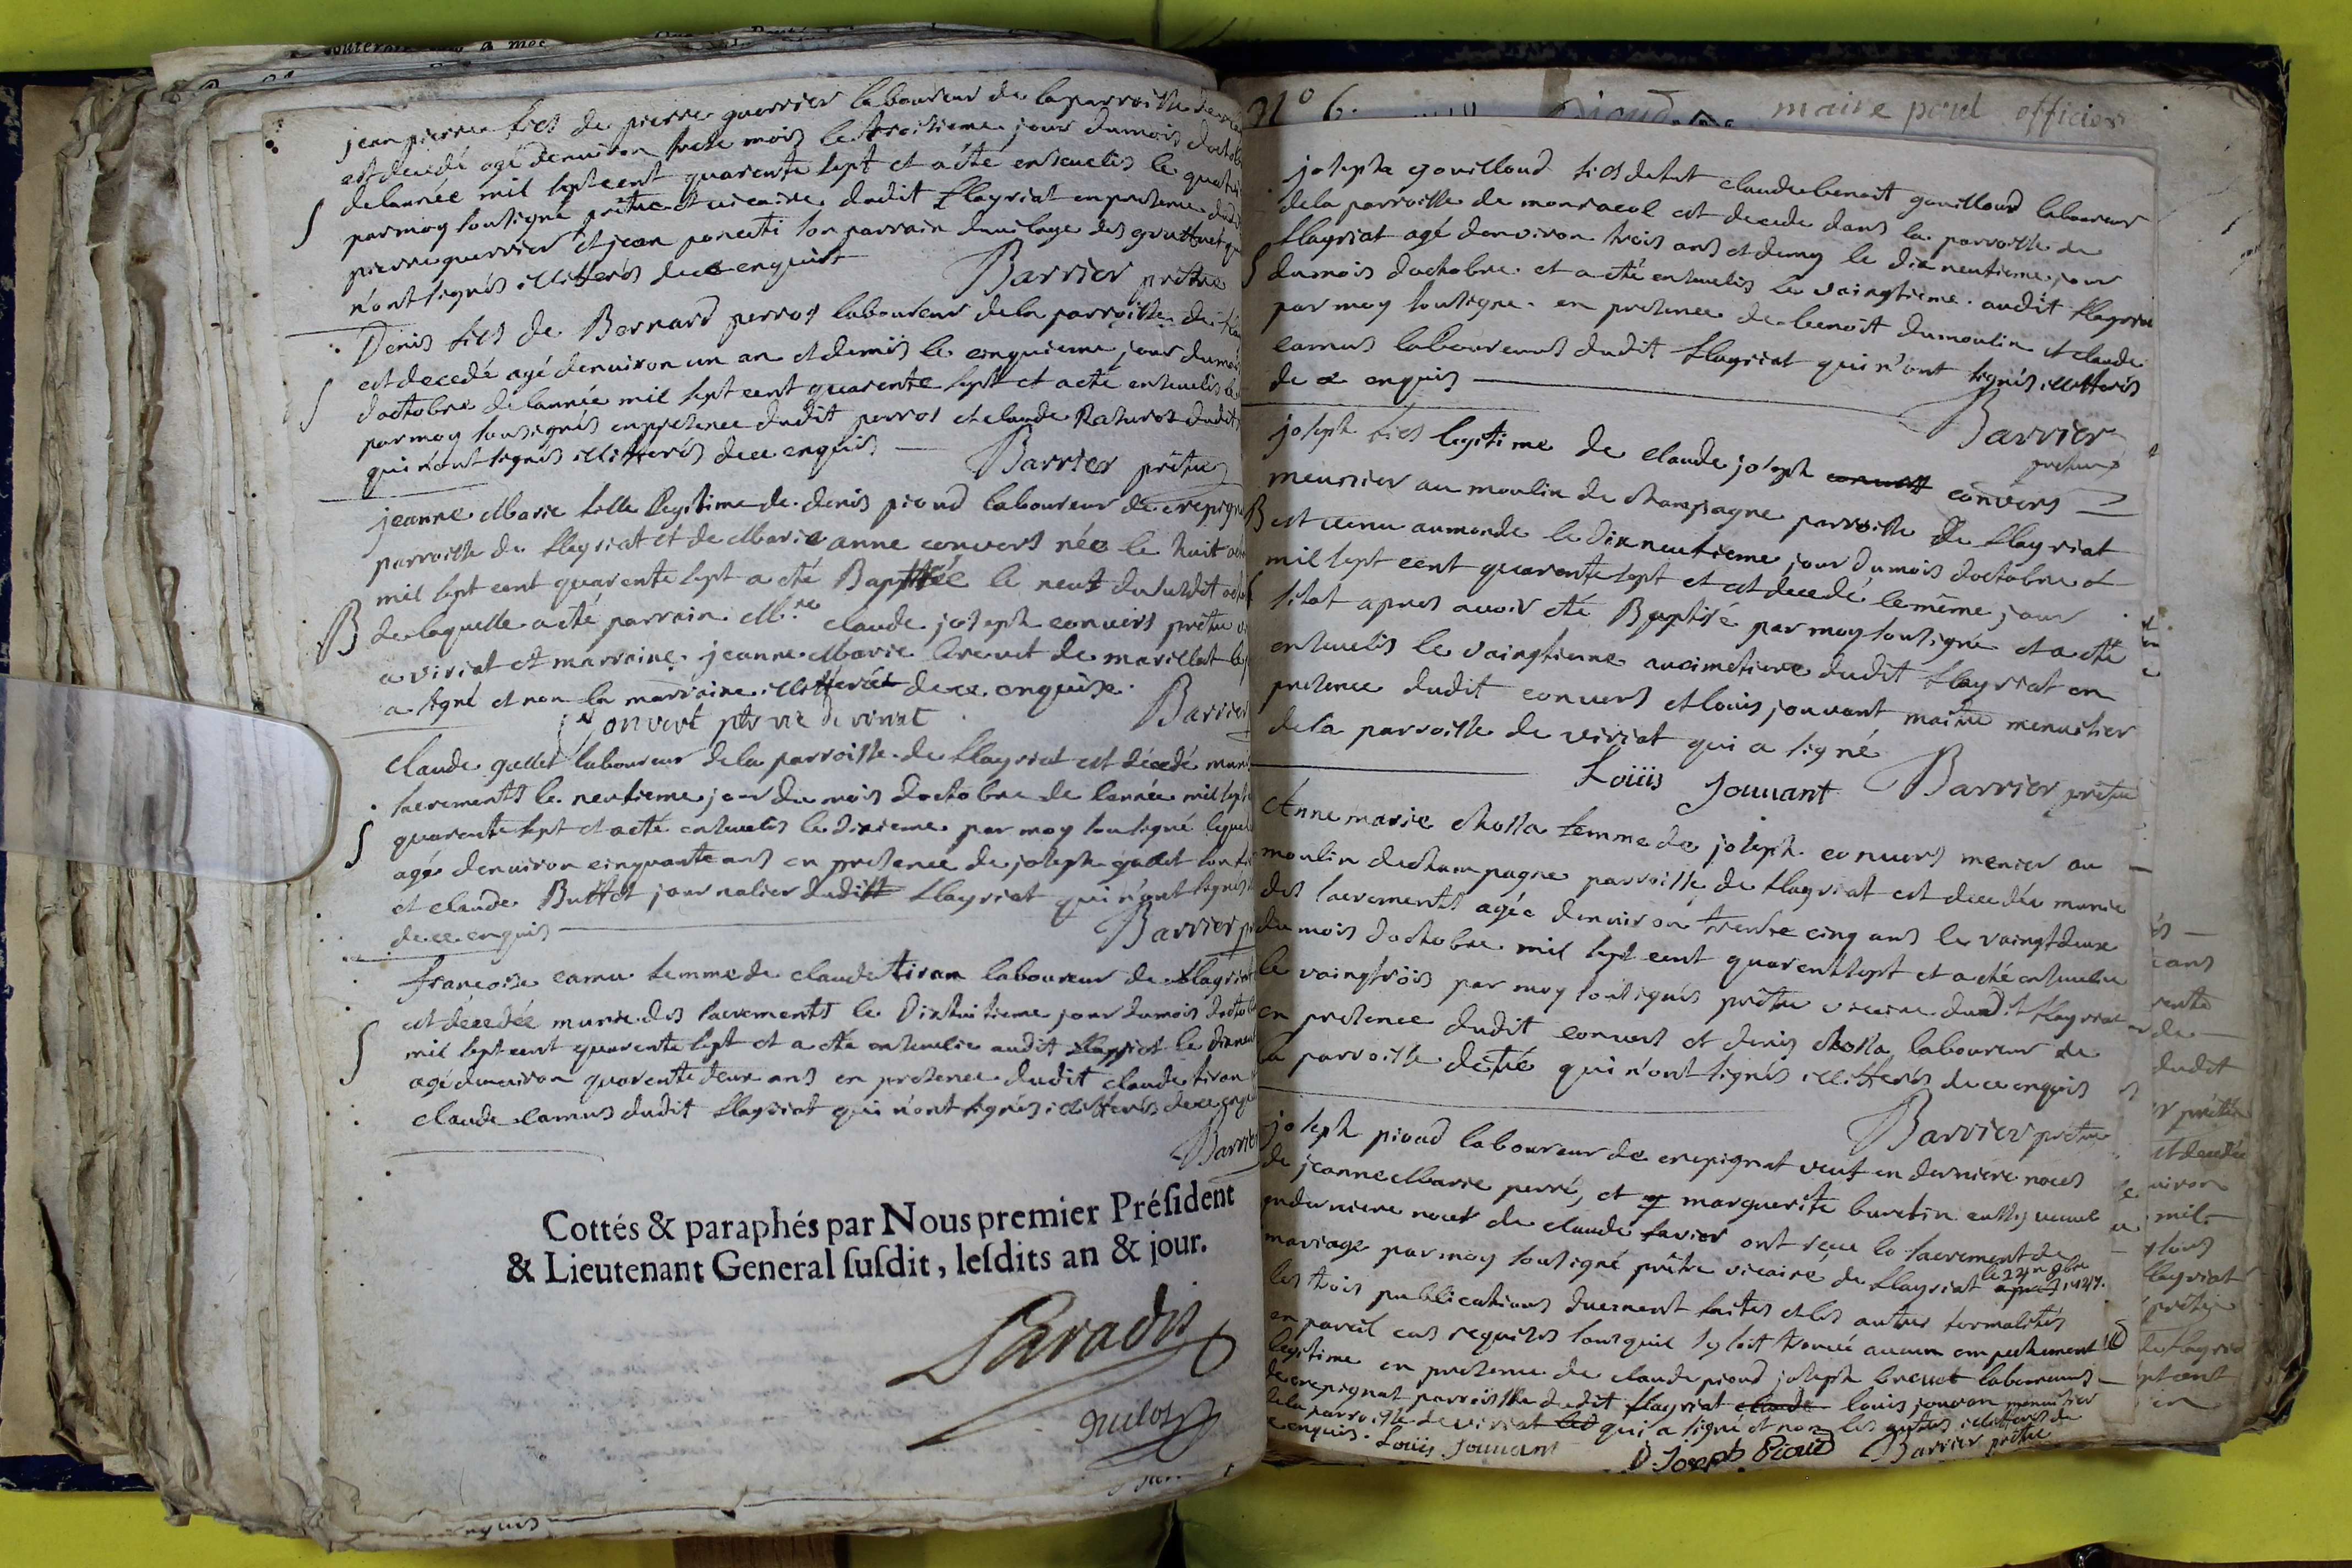 jean pierre fils de pierre guerrier laboureur de la parroisse de
est decedé agé denviron treze mois le troisieme jour du mois doctob
delannée mil sept cent quarente sept et a été enseuelis le quatri
S par moy soussigné prêtre et vicaire dudit flayriat en presence dud
pierre guerrier et jean poncti son parrain du vilage des gruttes qu
n'ont signés illitterés de ce enquist
Barrier prêtre
Denis fils de Bernard perros laboureur dela parroisse de fla
est decedé agé denuiron un an et demis le cinquieme jour du moi
S doctobre delannée mil sept cent quarente sept et a eté enseuelis le
par moy soussignés en presence dudit perros et claude Raturos dudit
qui n'ont signés illitterés de ce enquis
Barrier prêtre
jeanne Marie fille legitime de denis pioud laboureur de crepign
parroisse de flayriat et de Marie anne convers née le huit octo
mil sept cent quarente sept a eté Baptisée le neuf du susdit octob
B de laquelle a eté parrain Mre claude joseph conuers prêtre vi
a viriat et marraine jeanne Marie breuet de marillat le
a signé et non la marraine illitterée de ce enquise.
Convert ptr vic de viriat
Barrier
claude gallet laboureur dela parroisse de flayriat est décedé muni
sacrements le neufieme jour du mois doctobre de lannée mil sept
S quarente sept et a eté enseuelis le dixieme par moy soussigné lequel
agé denuiron cinquante ans en presence de joseph gallet son
et claude Buttet journalier dudit flayriat qui n'ont signés
de ce enquis
Barrier pr
francoise camu femme de claude tiran laboureur de flayriat
est décedée munie des sacrements le dixhuitieme jour du mois docto
S mil sept cent quarente sept et a eté enseuelie audit flayriat le dixneuf
agé denuiron quarente deux ans en presence dudit claude tiran
claude camus dudit flayriat qui n'ont signés illitterés de ce enqu
Barrier
Cottés & paraphés par Nous premier Préſident
& Lieutenant General ſuſdit, leſdits an & jour.
Paradis
N° 6.
maire poud officier
joseph gouilloud fils de fut claude benoit gouilloud laboureur
dela parroisse de monracol est decede dans la parroisse de
flayriat agé denviron trois ans et demy le dix neufieme jour
S du mois doctobre et a eté enseuelis le vaingtieme audit flayriat
par moy soussigne en presence de benoit dumoulin et claude
camus laboureurs dudit flayriat qui n'ont signés illitterés
de ce enquis
Barrier
prêtre
joseph fils legitime de claude joseph convers
meunier au moulin de champagne parroisse de flayriat
B est venu au monde le dix neufieme jour du mois doctobre
mil sept cent quarente sept et est decedé le même jour
sitot apres avoir eté Baptisé par moy soussigné et a eté
enseuelis le vaingtieme au cimetiere dudit flayriat en
presence dudit convers et louis jouvant maitre menusier
dela parroisse de viriat qui a signé
Loüis Jouuant Barrier prêtre
Anne marie chossa femme de joseph conuers menier au
moulin de champagne parroisse de flayriat est decedée munie
des sacrements agée denuiron trente cinq ans le vaingtdeux
du mois doctobre mil sept cent quarent sept et a eté enseuelie
le vaingtrois par moy soussignés prêtre vicaire dudit flayriat
en presence dudit conuers et denis chossa laboureur de
la parroisse detré qui n'ont signés illitterés de ce enquis
Barrier prêtre
joseph pioud laboureur de crepignat veuf en derniere noces
de jeanne Marie perré, et marguerite buretin aussy veuve
en derniere noces de claude favier ont recu le sacrement de
mariage par moy soussigné prêtre vicaire de flayriat le 24 n 9bre 1747.
les trois publications duement faites et les autres formalités
en pareil cas requises sans quil sy soit trouvé aucun empechement
legitime en presence de claude pioud joseph breuet laboureurs
de crepignat parroisse dudit flayriat louis jouvan menusier
dela parroisse de viriat qui a signé et non les autres illitterés de
ce enquis. Loüis Jouuant Joseph Pioud Barrier prêtre